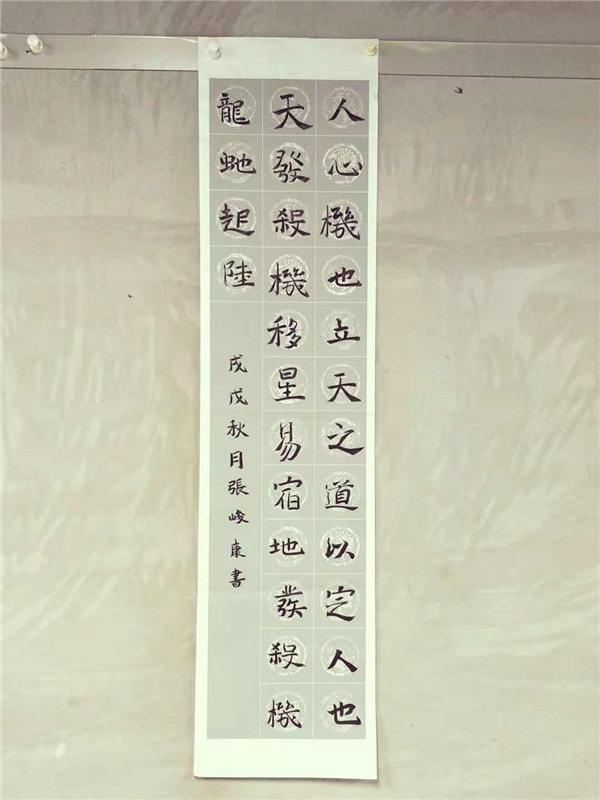 人心機也立天之道以定人也
天發殺機移星易宿地發殺機
龍虵起陸
戌戊秋月張峻康書